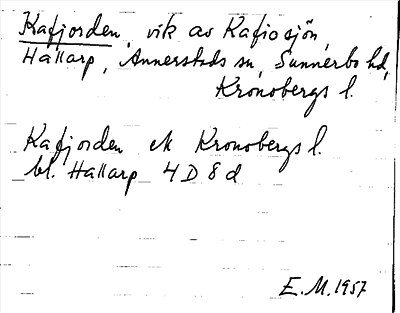 Kafjorden, vik av Kafjosjön,
Hallarp, Annerstads sn, Sunnerbo hd,
Kronobergs l.
Kafjorden ek Kronobergs l.
bl. Hallarp 4 D 8 d
E. M. 1957